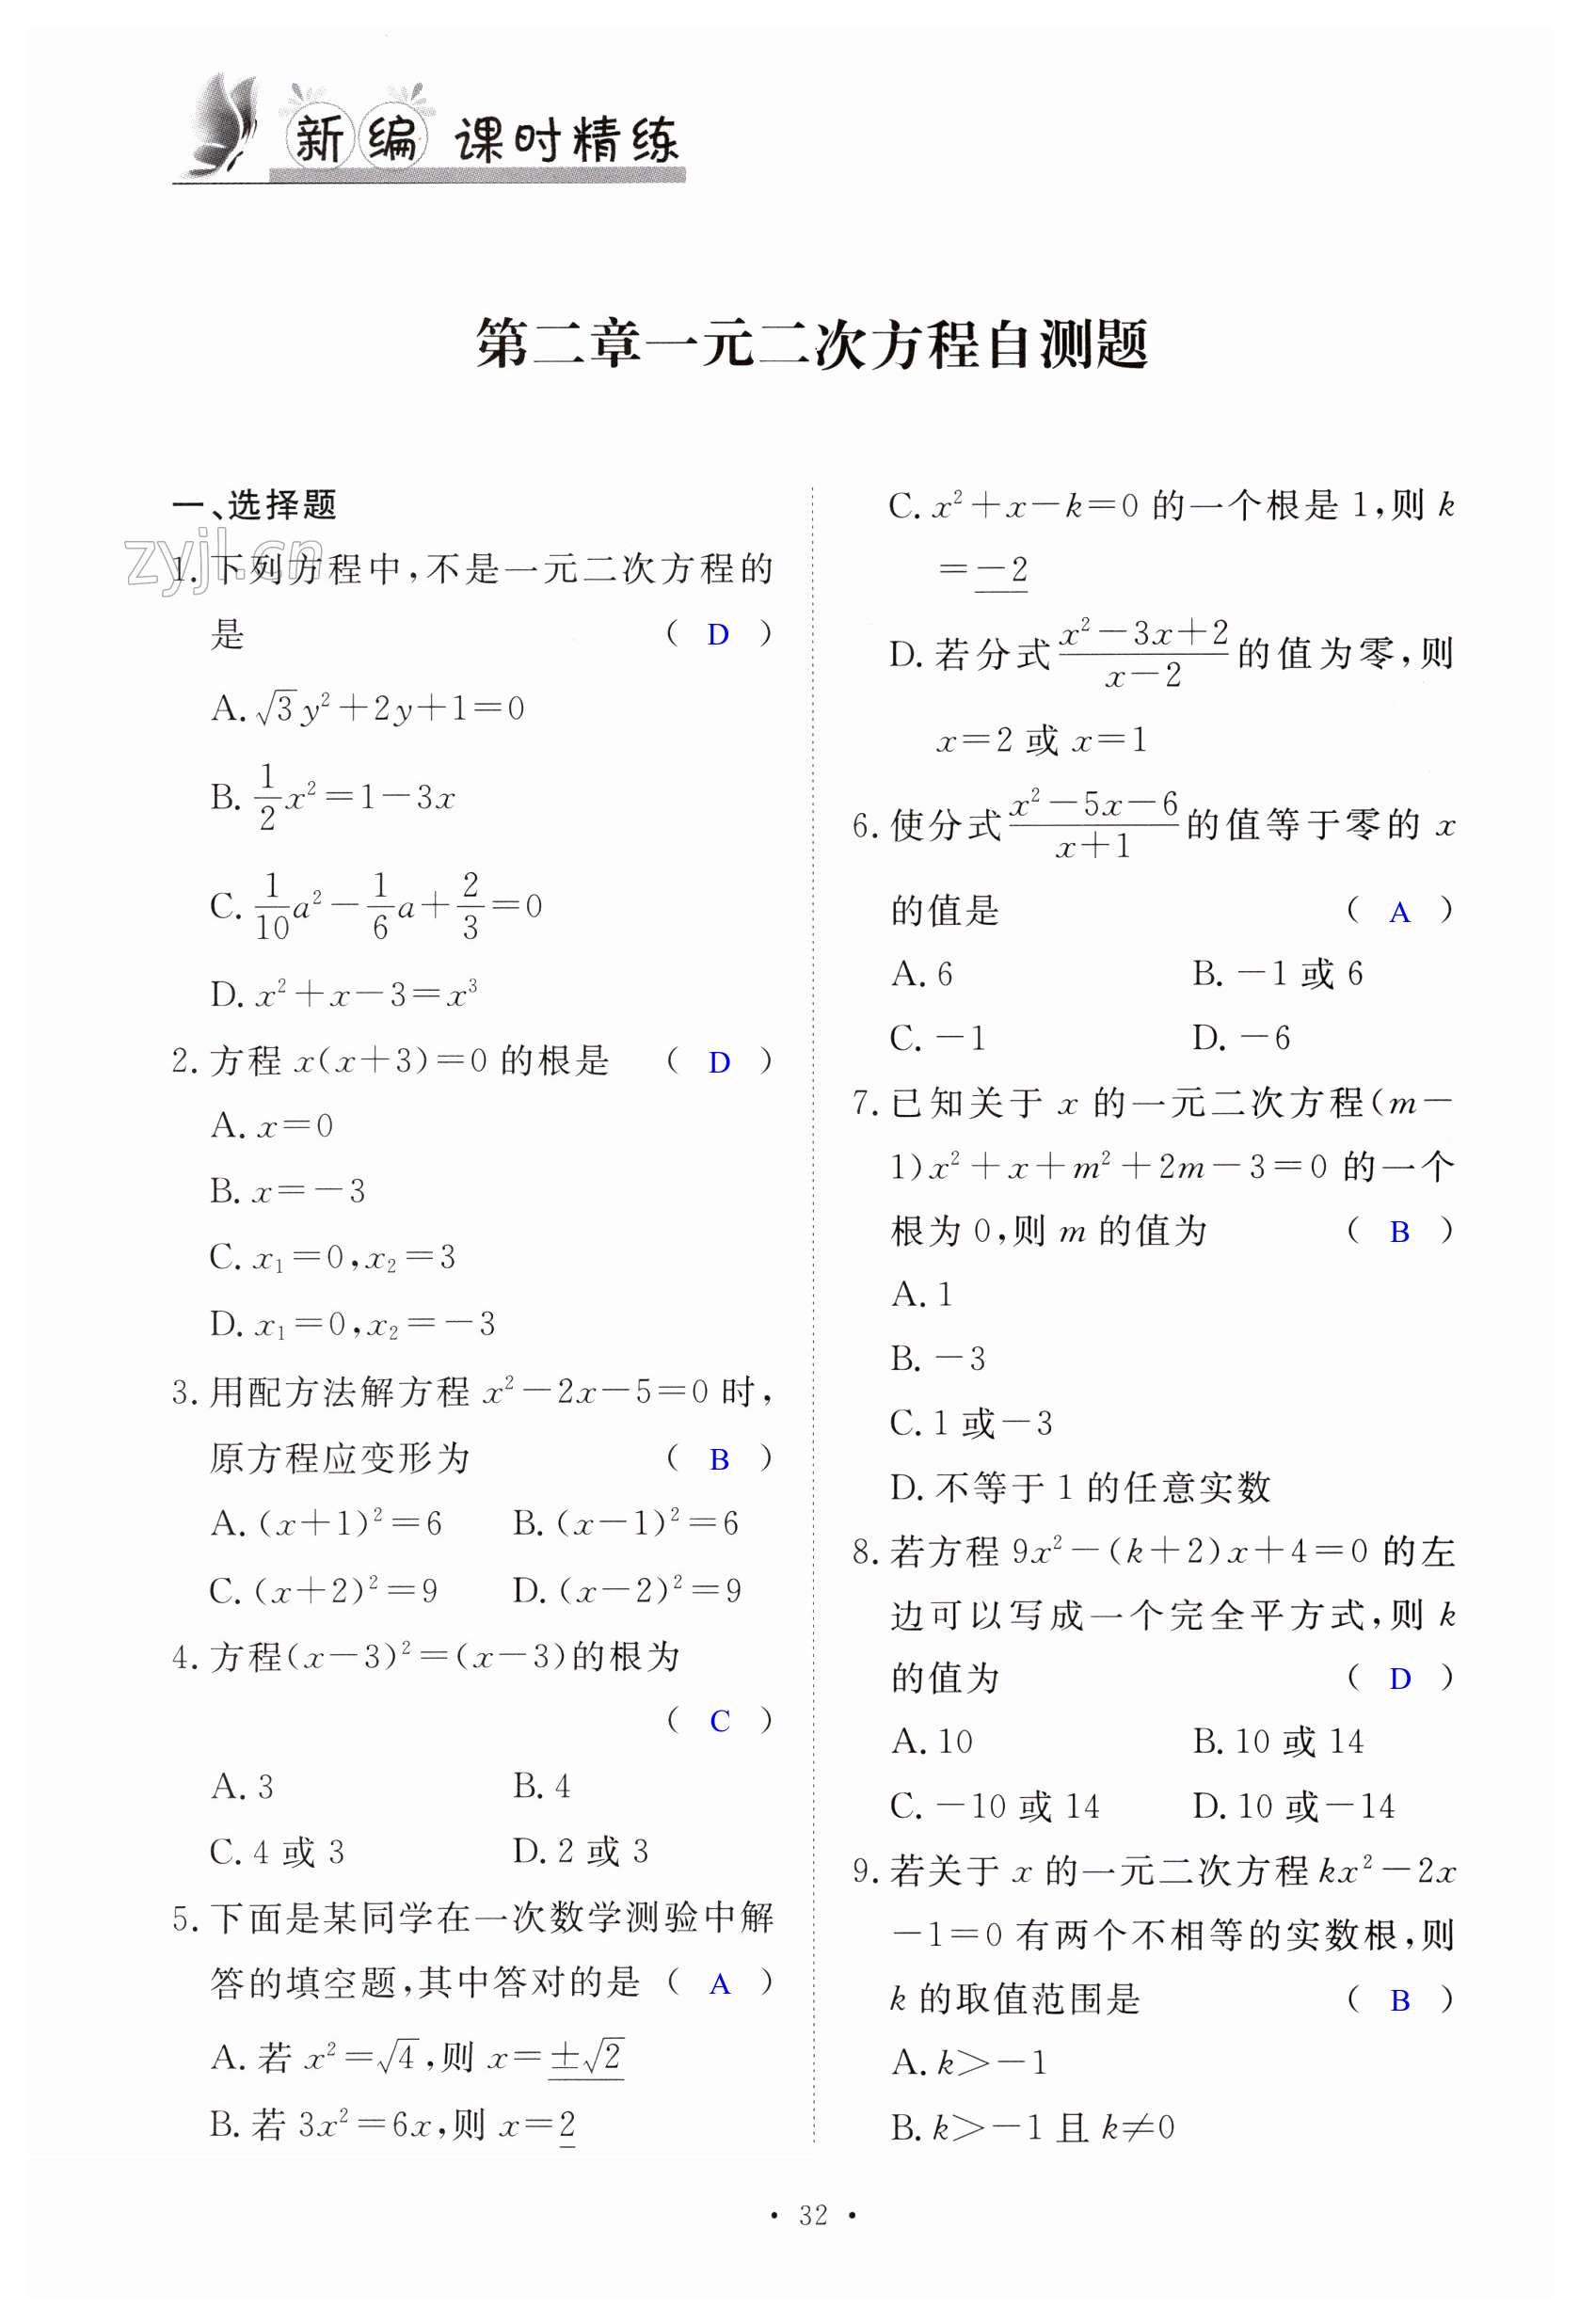 新编 课时精练
第二章一元二次方程自测题
一、选择题
zyjl.cn
1. 下列方程中,不是一元二次方程的
是 ( D )
A. √3y²+2y+1=0
B. 1/2x²=1-3x
C. 1/10a²-1/6a+2/3=0
D. x²+x-3=x³
2. 方程 x(x+3)=0 的根是 ( D )
A. x=0
B. x=-3
C. x₁=0,x₂=3
D. x₁=0,x₂=-3
3. 用配方法解方程 x²-2x-5=0 时,
原方程应变形为 ( B )
A. (x+1)²=6 B. (x-1)²=6
C. (x+2)²=9 D. (x-2)²=9
4. 方程(x-3)²=(x-3)的根为
( C )
A. 3 B. 4
C. 4 或 3 D. 2 或 3
5. 下面是某同学在一次数学测验中解
答的填空题,其中答对的是 ( A )
A. 若 x²=√4,则 x=±√2
B. 若 3x²=6x,则 x=2
C. x²+x-k=0 的一个根是 1,则 k
=-2
D. 若分式(x²-3x+2)/(x-2)的值为零,则
x=2 或 x=1
6. 使分式(x²-5x-6)/(x+1)的值等于零的 x
的值是 ( A )
A. 6 B. -1 或 6
C. -1 D. -6
7. 已知关于 x 的一元二次方程(m-
1)x²+x+m²+2m-3=0 的一个
根为 0,则 m 的值为 ( B )
A. 1
B. -3
C. 1 或-3
D. 不等于 1 的任意实数
8. 若方程 9x²-(k+2)x+4=0 的左
边可以写成一个完全平方式,则 k
的值为 ( D )
A. 10 B. 10 或 14
C. -10 或 14 D. 10 或-14
9. 若关于 x 的一元二次方程 kx²-2x
-1=0 有两个不相等的实数根,则
k 的取值范围是 ( B )
A. k>-1
B. k>-1 且 k≠0
· 32 ·